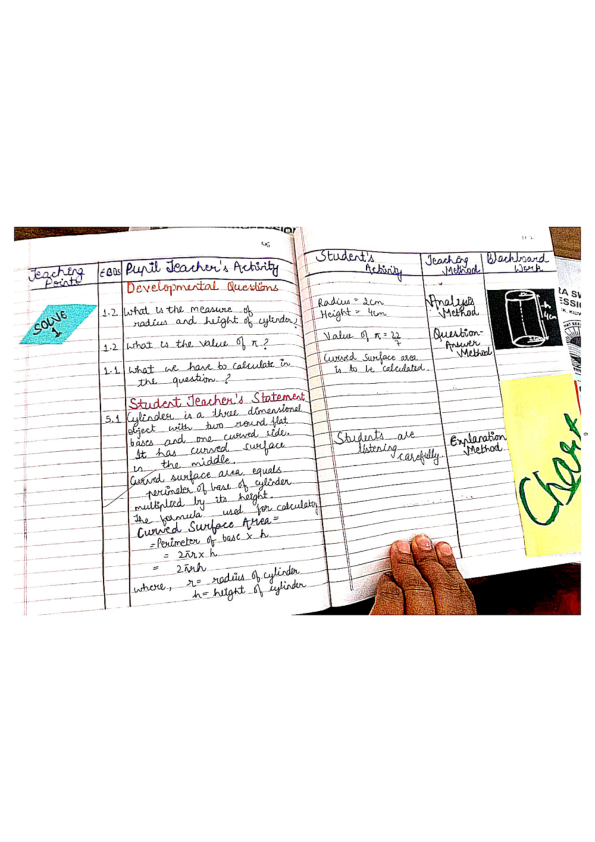 46
Teaching Points
EBOs
Pupil Teacher's Activity
Student's Activity
Teaching Method
Blackboard Work
SOLVE 1
Developmental Questions
1.2 What is the measure of
radius and height of cylinder?
Radius = 2cm
Height = 4cm
Analysis Method
4cm
1.2 What is the value of π?
Value of π = 22/7
Question-
Answer
Method
1.1 What we have to calculate in
the question?
Curved surface area
is to be calculated.
Student Teacher's Statement
5.1 Cylinder is a three dimensional
object with two round flat
bases and one curved side.
It has curved surface
in the middle.
Curved surface area equals
perimeter of base of cylinder
multiplied by its height.
The formula used for calculating
Curved Surface Area =
= Perimeter of base x h
= 2πr x h
= 2πrh
where, r = radius of cylinder
h = height of cylinder
Students are
listening
carefully.
Explanation
Method
Chart